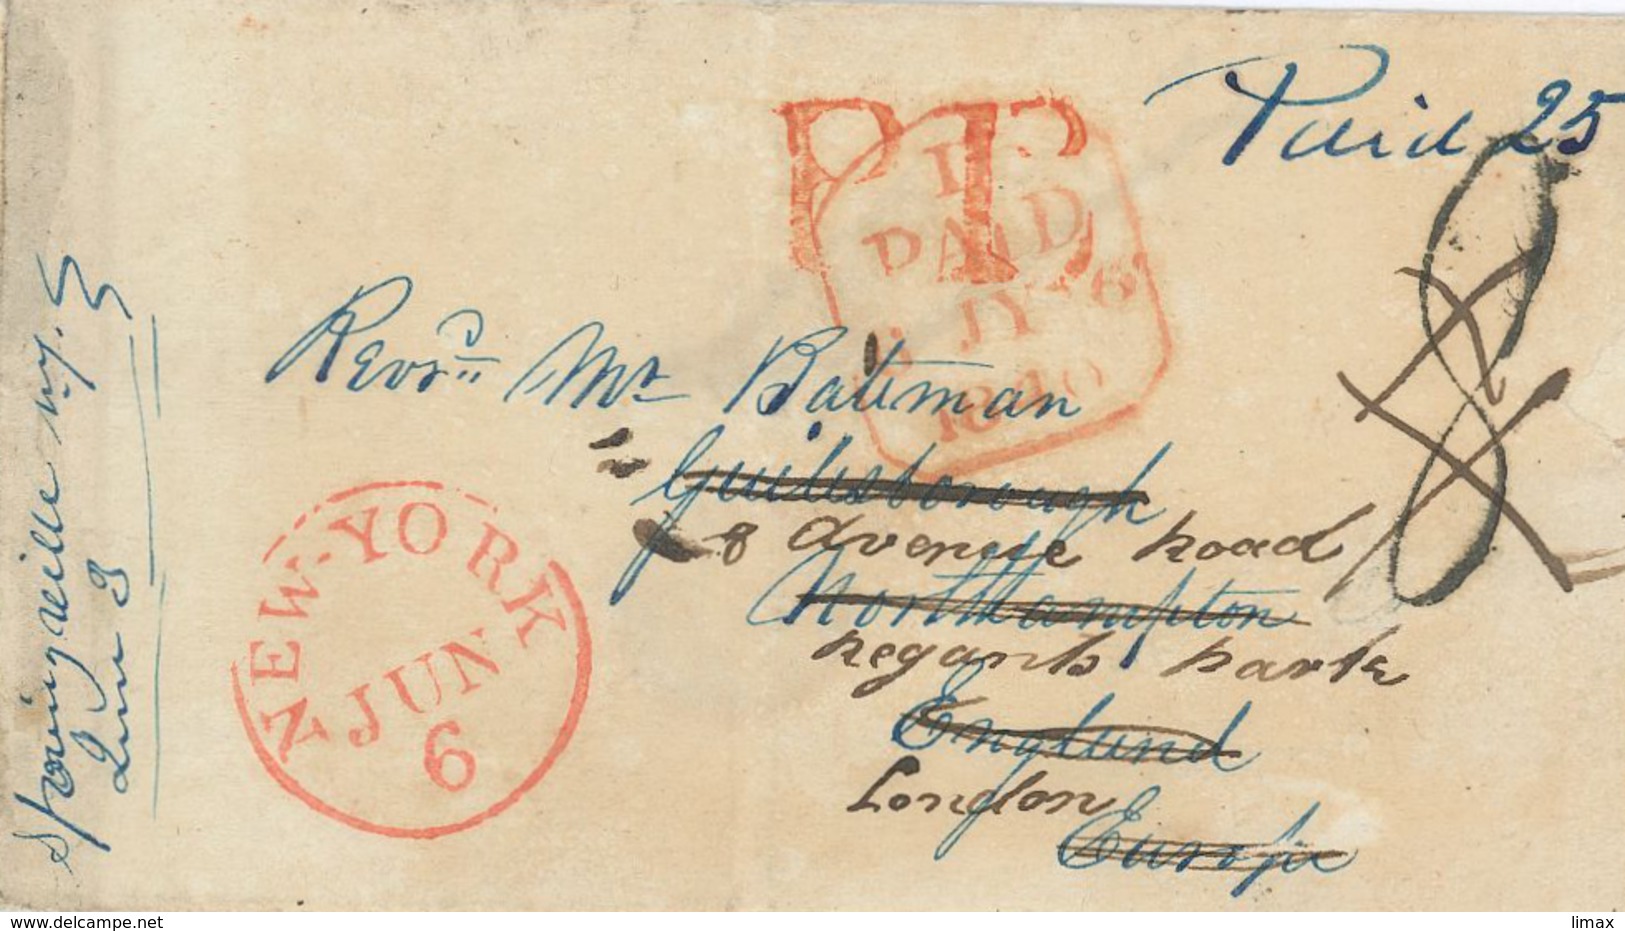 Paid 25
PAID
PAID
JY 6
1840
Revrd Mr Bateman
Guilesborough
8 Avenue Road
Northhampton
Regants Park
England
London
Europe
NEW-YORK
JUN
6
Springville N.Y.
June 3
© www.delcampe.net
limax